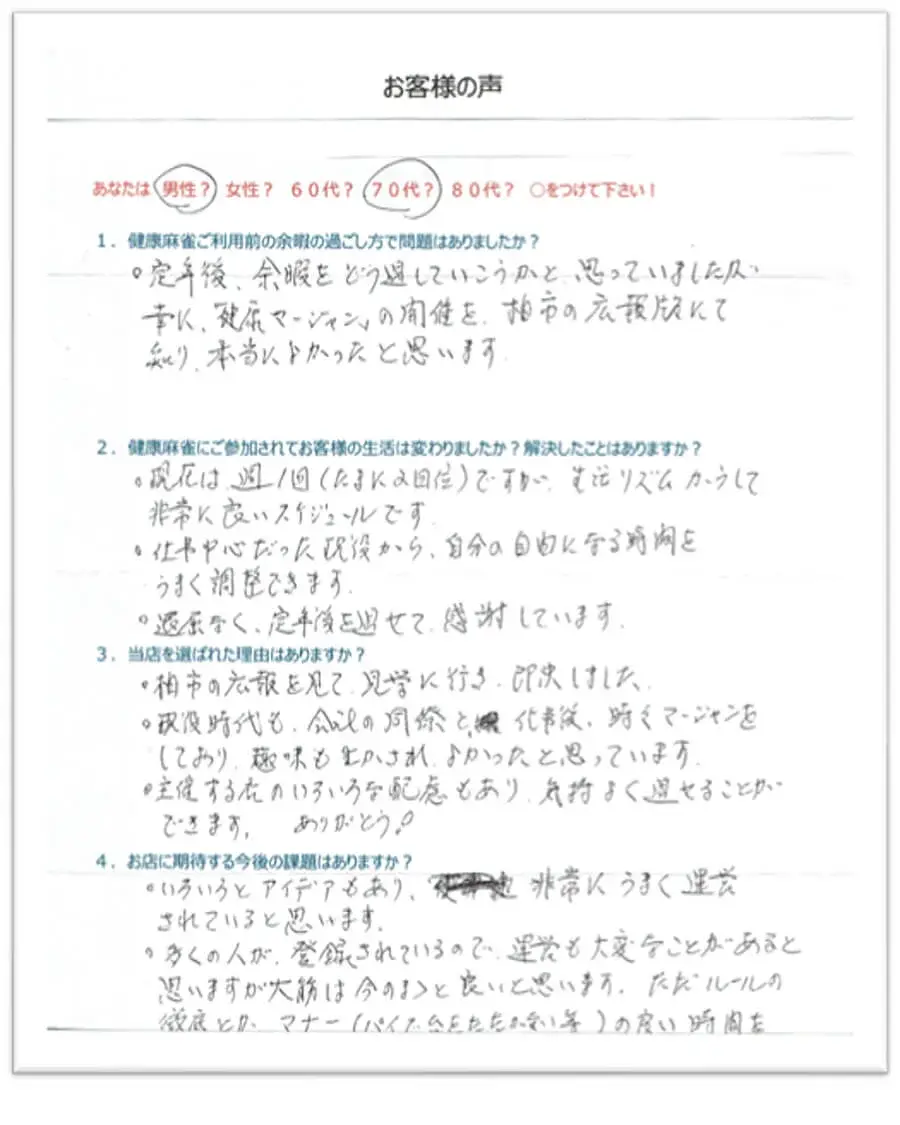 お客様の声
あなたは 男性？ 女性？ ６０代？ ７０代？ ８０代？ ○をつけて下さい！
１．健康麻雀ご利用前の余暇の過ごし方で問題はありましたか？
○定年後、余暇をどう過していこうかと、思っていましたが
幸に、健康マージャン」の開催を、柏市の広報版にて
知り、本当によかったと思います。
２．健康麻雀にご参加されてお客様の生活は変わりましたか？解決したことはありますか？
○現在は、週1回（たまに2回位）ですが、生活リズム かうして
非常に良いスケジュールです。
○仕事中心だった現役から、自分の自由になる時間を
うまく調整できます。
○退屈なく、定年後を過せて、感謝しています。
３．当店を選ばれた理由はありますか？
○柏市の広報を見て、見学に行き、即決しました。
○現役時代も、会社の同僚と、仕事後、時々マージャンを
しており、趣味も生かされ、よかったと思っています。
○主催する店のいろいろな配慮もあり、気持よく過せることが
できます。 ありがとう。
４．お店に期待する今後の課題はありますか？
○いろいろとアイデアもあり、非常にうまく運営
されていると思います。
○多くの人が、登録されているので、運営も大変なことがあると
思いますが大筋は今のまゝと良いと思います。ただルールの
徹底とか、マナー（パイ 台をたたかない等）の良い時間を